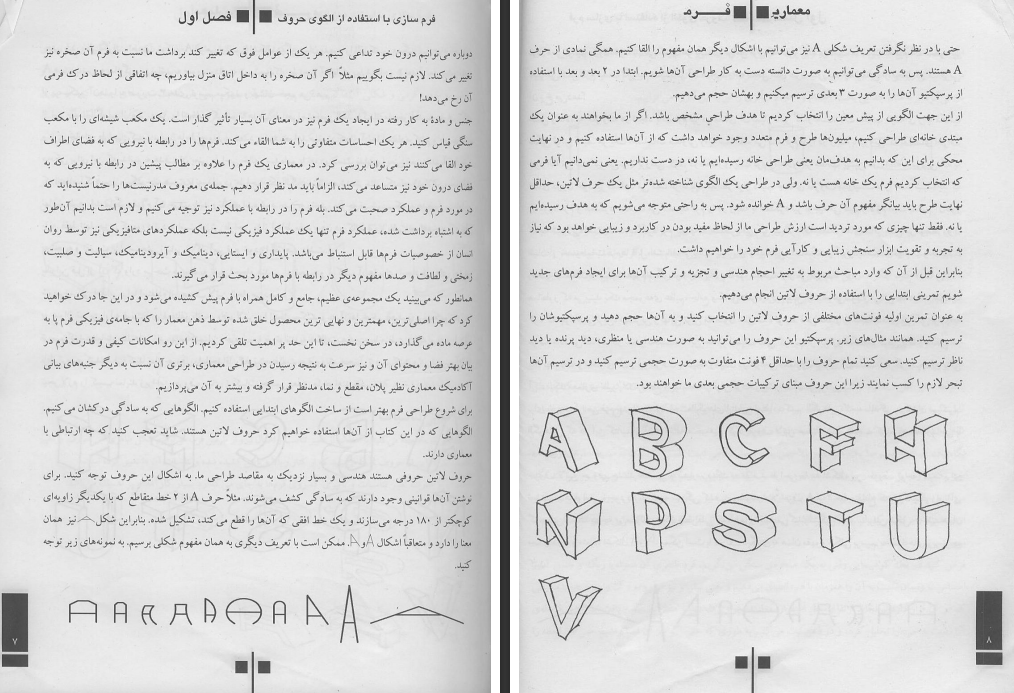 فرم سازی با استفاده از الگوی حروف فصل اول
دوباره می‌توانیم درون خود تداعی کنیم. هر یک از عوامل فوق که تغییر کند برداشت ما نسبت به فرم آن صخره نیز
تغییر می‌کند. لازم نیست بگوییم مثلاً اگر آن صخره را به داخل اتاق منزل بیاوریم، چه اتفاقی از لحاظ درک فرمی
آن رخ می‌دهد!
جنس و مادهٔ به کار رفته در ایجاد یک فرم نیز در معنای آن بسیار تأثیر گذار است. یک مکعب شیشه‌ای را با مکعب
سنگی قیاس کنید. هر یک احساسات متفاوتی را به شما القاء می‌کند. فرم‌ها را در رابطه با نیرویی که به فضای اطراف
خود القا می‌کنند نیز می‌توان بررسی کرد. در معماری یک فرم را علاوه بر مطالب پیشین در رابطه با نیرویی که به
فضای درون خود نیز متساعد می‌کند، الزاماً باید مد نظر قرار دهیم. جمله‌ی معروف مدرنیست‌ها را حتماً شنیده‌اید که
در مورد فرم و عملکرد صحبت می‌کند. بله فرم را در رابطه با عملکرد نیز توجیه می‌کنیم و لازم است بدانیم آن‌طور
که به اشتباه برداشت شده، عملکرد فرم تنها یک عملکرد فیزیکی نیست بلکه عملکردهای متافیزیکی نیز توسط روان
انسان از خصوصیات فرم‌ها قابل استنباط می‌باشد. پایداری و ایستایی، دینامیک و آیرودینامیک، سیالیت و صلبیت،
زمختی و لطافت و صدها مفهوم دیگر در رابطه با فرم‌ها مورد بحث قرار می‌گیرند.
همانطور که می‌بینید یک مجموعه‌ی عظیم، جامع و کامل همراه با فرم پیش کشیده می‌شود و در این جا درک خواهید
کرد که چرا اصلی‌ترین، مهمترین و نهایی ترین محصول خلق شده توسط ذهن معمار را که با جامه‌ی فیزیکی فرم پا به
عرصه ماده می‌گذارد، در سخن نخست، تا این حد پر اهمیت تلقی کردیم. از این رو امکانات کیفی و قدرت فرم در
بیان بهتر فضا و محتوای آن و نیز سرعت به نتیجه رسیدن در طراحی معماری، برتری آن نسبت به دیگر جنبه‌های بیانی
آکادمیک معماری نظیر پلان، مقطع و نما، مدنظر قرار گرفته و بیشتر به آن می‌پردازیم.
برای شروع طراحی فرم بهتر است از ساخت الگوهای ابتدایی استفاده کنیم. الگوهایی که به سادگی درکشان می‌کنیم.
الگوهایی که در این کتاب از آن‌ها استفاده خواهیم کرد حروف لاتین هستند. شاید تعجب کنید که چه ارتباطی با
معماری دارند.
حروف لاتین حروفی هستند هندسی و بسیار نزدیک به مقاصد طراحی ما. به اشکال این حروف توجه کنید. برای
نوشتن آن‌ها قوانینی وجود دارند که به سادگی کشف می‌شوند. مثلاً حرف A از ۲ خط متقاطع که با یکدیگر زاویه‌ای
کوچکتر از ۱۸۰ درجه می‌سازند و یک خط افقی که آن‌ها را قطع می‌کند، تشکیل شده. بنابراین شکل A نیز همان
معنا را دارد و متعاقباً اشکال A و A. ممکن است با تعریف دیگری به همان مفهوم شکلی برسیم. به نمونه‌های زیر توجه
کنید.
A A A A A A A A A A
۷
معماری فرم
حتی با در نظر نگرفتن تعریف شکلی A نیز می‌توانیم با اشکال دیگر همان مفهوم را القا کنیم. همگی نمادی از حرف
A هستند. پس به سادگی می‌توانیم به صورت دانسته دست به کار طراحی آن‌ها شویم. ابتدا در ۲ بعد و بعد با استفاده
از پرسپکتیو آن‌ها را به صورت ۳ بعدی ترسیم میکنیم و بهشان حجم می‌دهیم.
از این جهت الگویی از پیش معین را انتخاب کردیم تا هدف طراحیِ مشخص باشد. اگر از ما بخواهند به عنوان یک
مبتدی خانه‌ای طراحی کنیم، میلیون‌ها طرح و فرم متعدد وجود خواهد داشت که از آن‌ها استفاده کنیم و در نهایت
محکی برای این که بدانیم به هدف‌مان یعنی طراحی خانه رسیده‌ایم یا نه، در دست نداریم. یعنی نمی‌دانیم آیا فرمی
که انتخاب کردیم فرم یک خانه هست یا نه. ولی در طراحی یک الگوی شناخته شده‌تر مثل یک حرف لاتین، حداقل
نهایت طرح باید بیانگر مفهوم آن حرف باشد و A خوانده شود. پس به راحتی متوجه می‌شویم که به هدف رسیده‌ایم
یا نه. فقط تنها چیزی که مورد تردید است ارزش طراحی ما از لحاظ مفید بودن در کاربرد و زیبایی خواهد بود که نیاز
به تجربه و تقویت ابزار سنجش زیبایی و کارآیی فرم خود را خواهیم داشت.
بنابراین قبل از آن که وارد مباحث مربوط به تغییر احجام هندسی و تجزیه و ترکیب آن‌ها برای ایجاد فرم‌های جدید
شویم تمرینی ابتدایی را با استفاده از حروف لاتین انجام می‌دهیم.
به عنوان تمرین اولیه فونت‌های مختلفی از حروف لاتین را انتخاب کنید و به آن‌ها حجم دهید و پرسپکتیوشان را
ترسیم کنید. همانند مثال‌های زیر، پرسپکتیو این حروف را می‌توانید به صورت هندسی یا منظری، دید پرنده یا دید
ناظر ترسیم کنید. سعی کنید تمام حروف را با حداقل ۴ فونت متفاوت به صورت حجمی ترسیم کنید و در ترسیم آن‌ها
تبحر لازم را کسب نمایند زیرا این حروف مبنای ترکیبات حجمی بعدی ما خواهند بود.
A B C F H
N P S T U
V
۸